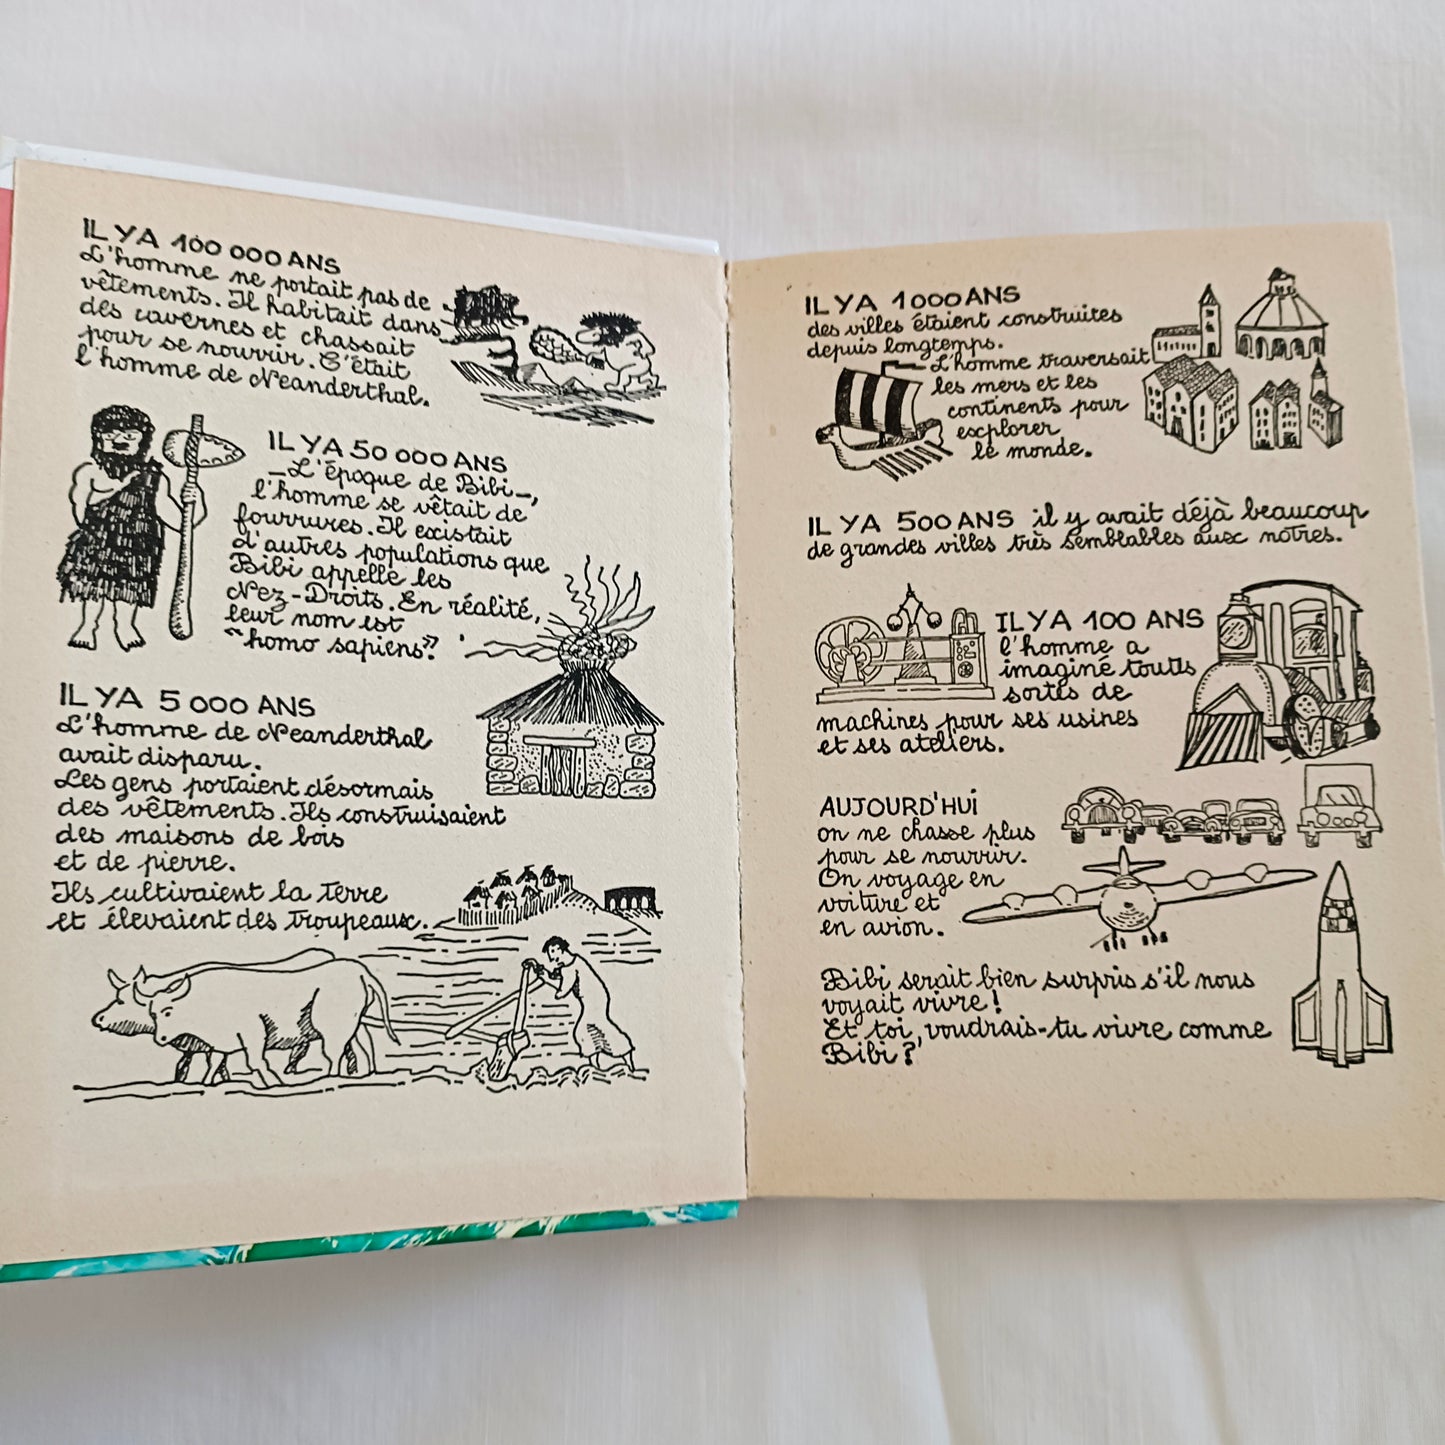 IL Y A 100 000 ANS
L'homme ne portait pas de
vêtements. Il habitait dans
des cavernes et chassait
pour se nourrir. C'était
l'homme de Neanderthal.
IL Y A 50 000 ANS
– L'époque de Bibi –,
l'homme se vêtait de
fourrures. Il existait
d'autres populations que
Bibi appelle les
Nez-Droits. En réalité,
leur nom est
"homo sapiens".
IL Y A 5 000 ANS
L'homme de Neanderthal
avait disparu.
Les gens portaient désormais
des vêtements. Ils construisaient
des maisons de bois
et de pierre.
Ils cultivaient la terre
et élevaient des troupeaux.
IL Y A 1 000 ANS
des villes étaient construites
depuis longtemps.
L'homme traversait
les mers et les
continents pour
explorer
le monde.
IL Y A 500 ANS il y avait déjà beaucoup
de grandes villes très semblables aux nôtres.
IL Y A 100 ANS
l'homme a
imaginé toutes
sortes de
machines pour ses usines
et ses ateliers.
AUJOURD'HUI
on ne chasse plus
pour se nourrir.
On voyage en
voiture et
en avion.
Bibi serait bien surpris s'il nous
voyait vivre !
Et toi, voudrais-tu vivre comme
Bibi ?